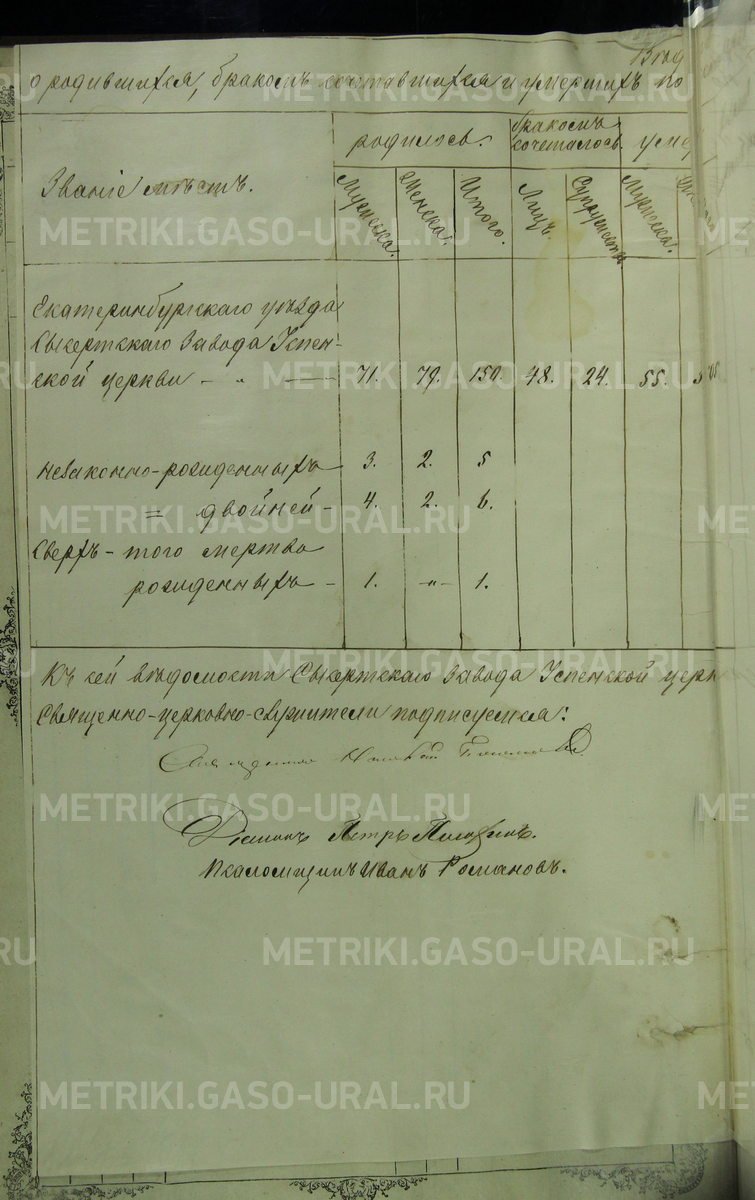 о родившихся, бракомъ сочетавшихся и умершихъ по
родилось.
бракомъ
сочеталось.
Званіе мѣстъ.
Мужеска.
Женска.
Итого.
Лицъ.
Супружествъ
Мужеска.
Екатеринбургскаго уѣзда
Сысертскаго Завода Успен-
ской церкви 71. 79. 150. 48. 24. 55.
незаконно-рожденныхъ 3. 2. 5
= двойней - 4. 2. 6.
Сверхъ - того мертво
рожденныхъ - 1. -„- 1.
Къ сей вѣдомости Сысертскаго Завода Успенской церк
Священно-церковно-служители подписуемся:
Священникъ
Діаконъ Петръ
Псаломщикъ Иванъ Романовъ.
METRIKI.GASO-URAL.RU